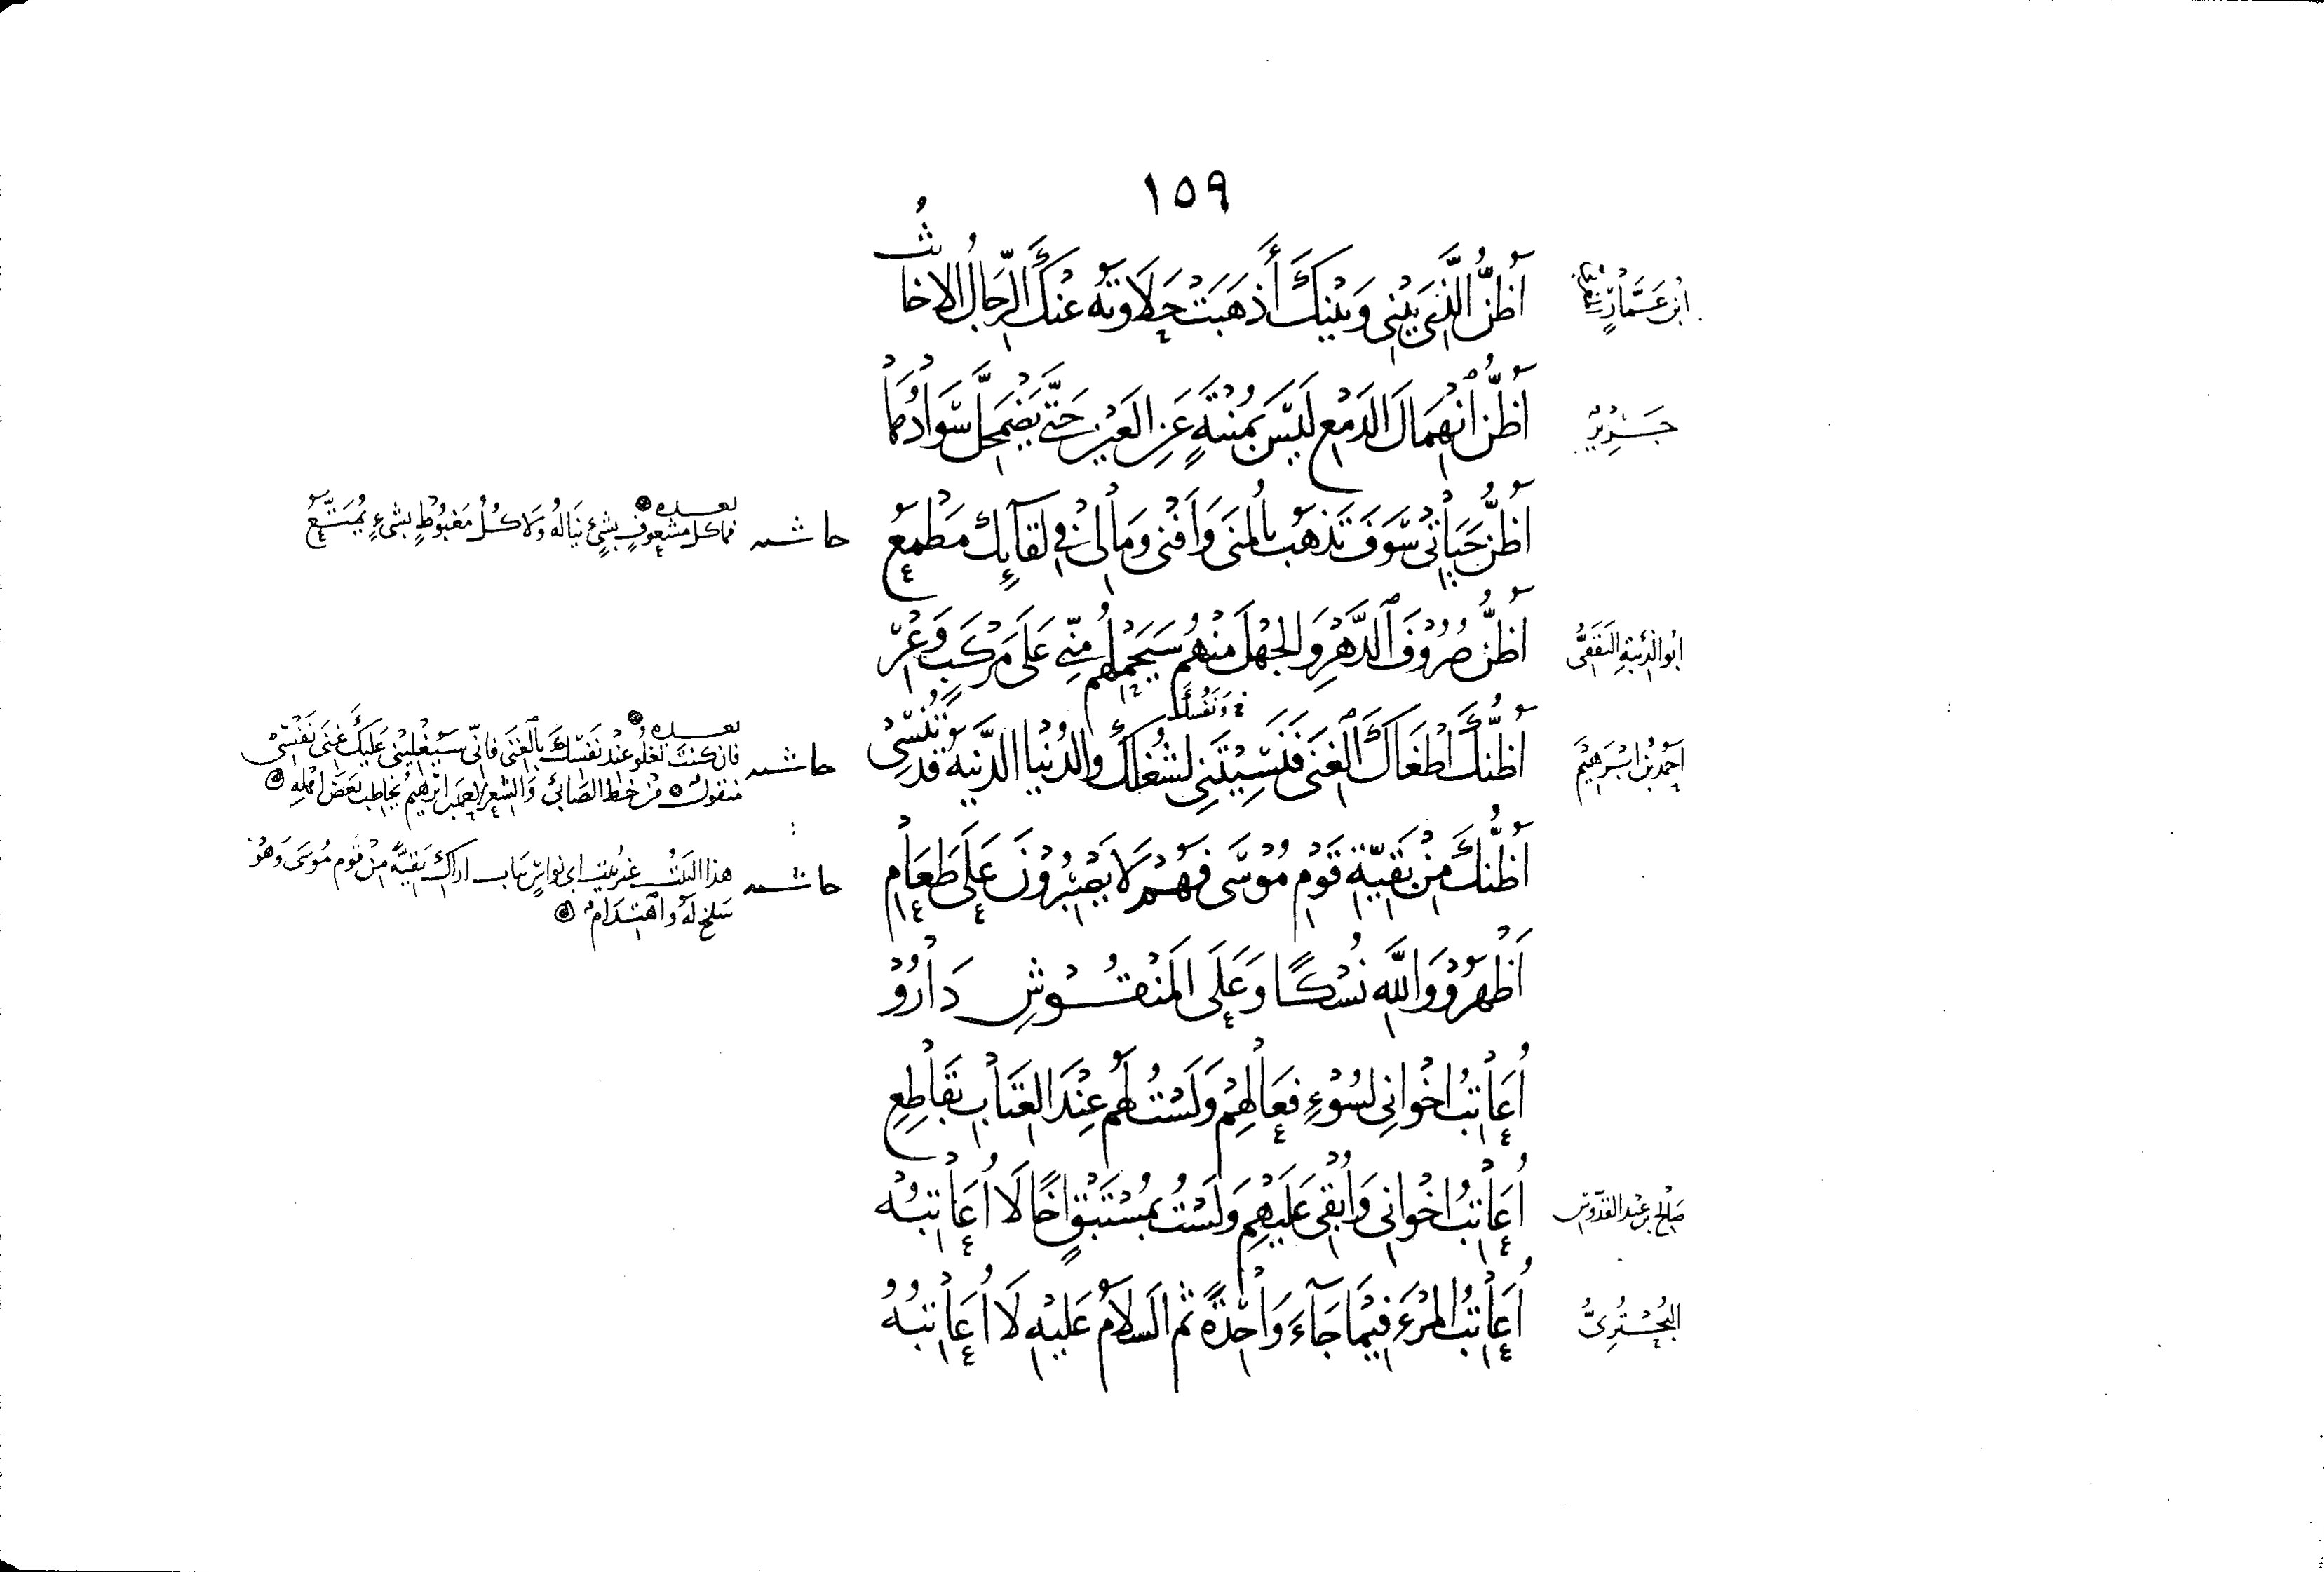 ١٥٩
ابن عمار
أَظُنُّ الَّذِي بَيْنِي وَبَيْنَكَ أَذْهَبَتْ حَلَاوَتَهُ عَنْكَ الرِّجَالُ الأَخَابِثُ
جَرِيرٌ
أَظُنُّ انْهِمَالَ الدَّمْعِ لَيْسَ بِمُنْتَهٍ عَنِ العَيْنِ حَتَّى يَضْمَحِلَّ سَوَادُهَا
أَظُنُّ حَيَاتِي سَوْفَ تَذْهَبُ بِالمُنَى وَأَفْنَى وَمَا لِي فِي لِقَائِكَ مَطْمَعُ
حاشية
بعده
فما كل مشعوفٍ بشيءٍ يناله ولا كلُّ مغبوطٍ بشيءٍ يُمتَّعُ
الثَقَفِيُّ
أَظُنُّ صُرُوفَ الدَّهْرِ وَالجَهْلَ مِنْهُمُ سَيَحْمِلُهُمْ مِنِّي عَلَى مَرْكَبٍ وَعْرِ
أحمد بن إبراهيم
أَظُنُّكَ أَطْغَاكَ الغِنَى فَنَسِيتَنِي لِشُغْلِكَ وَالدُّنْيَا الدَّنِيَّةُ قَدْ تُنْسِي
وَنَفْسَكَ
حاشية
بعده
فإن كنت تعلو عند نفسك بالغنى فإني سيعليني عليك غنى نفسي
منقول من خط الصابئ والشعر إبراهيم يخاطب بعض أهله
أَظُنُّكَ مِنْ بَقِيَّةِ قَوْمِ مُوسَى فَهُمْ لَا يَصْبِرُونَ عَلَى طَعَامِ
حاشية
هذا البيت غير بيت أبي نواس بباب أراك بقية من قوم موسى وهو
سلخ له واهتدام
أَظْهَرُوا وَاللهِ نُسْكًا وَعَلَى المَنْقُوشِ دَارُوا
أُعَاتِبُ إِخْوَانِي لِسُوءِ فِعَالِهِمْ وَلَسْتُ لَهُمْ عِنْدَ العِتَابِ بِقَاطِعِ
صالح بن عبد القدوس
أُعَاتِبُ إِخْوَانِي وَأُبْقِي عَلَيْهِمُ وَلَسْتُ بِمُسْتَبْقٍ أَخًا لَا أُعَاتِبُهْ
البُحْتُرِيُّ
أُعَاتِبُ المَرْءَ فِيمَا جَاءَ وَاحِدَةً ثُمَّ السَّلَامُ عَلَيْهِ لَا أُعَاتِبُهُ